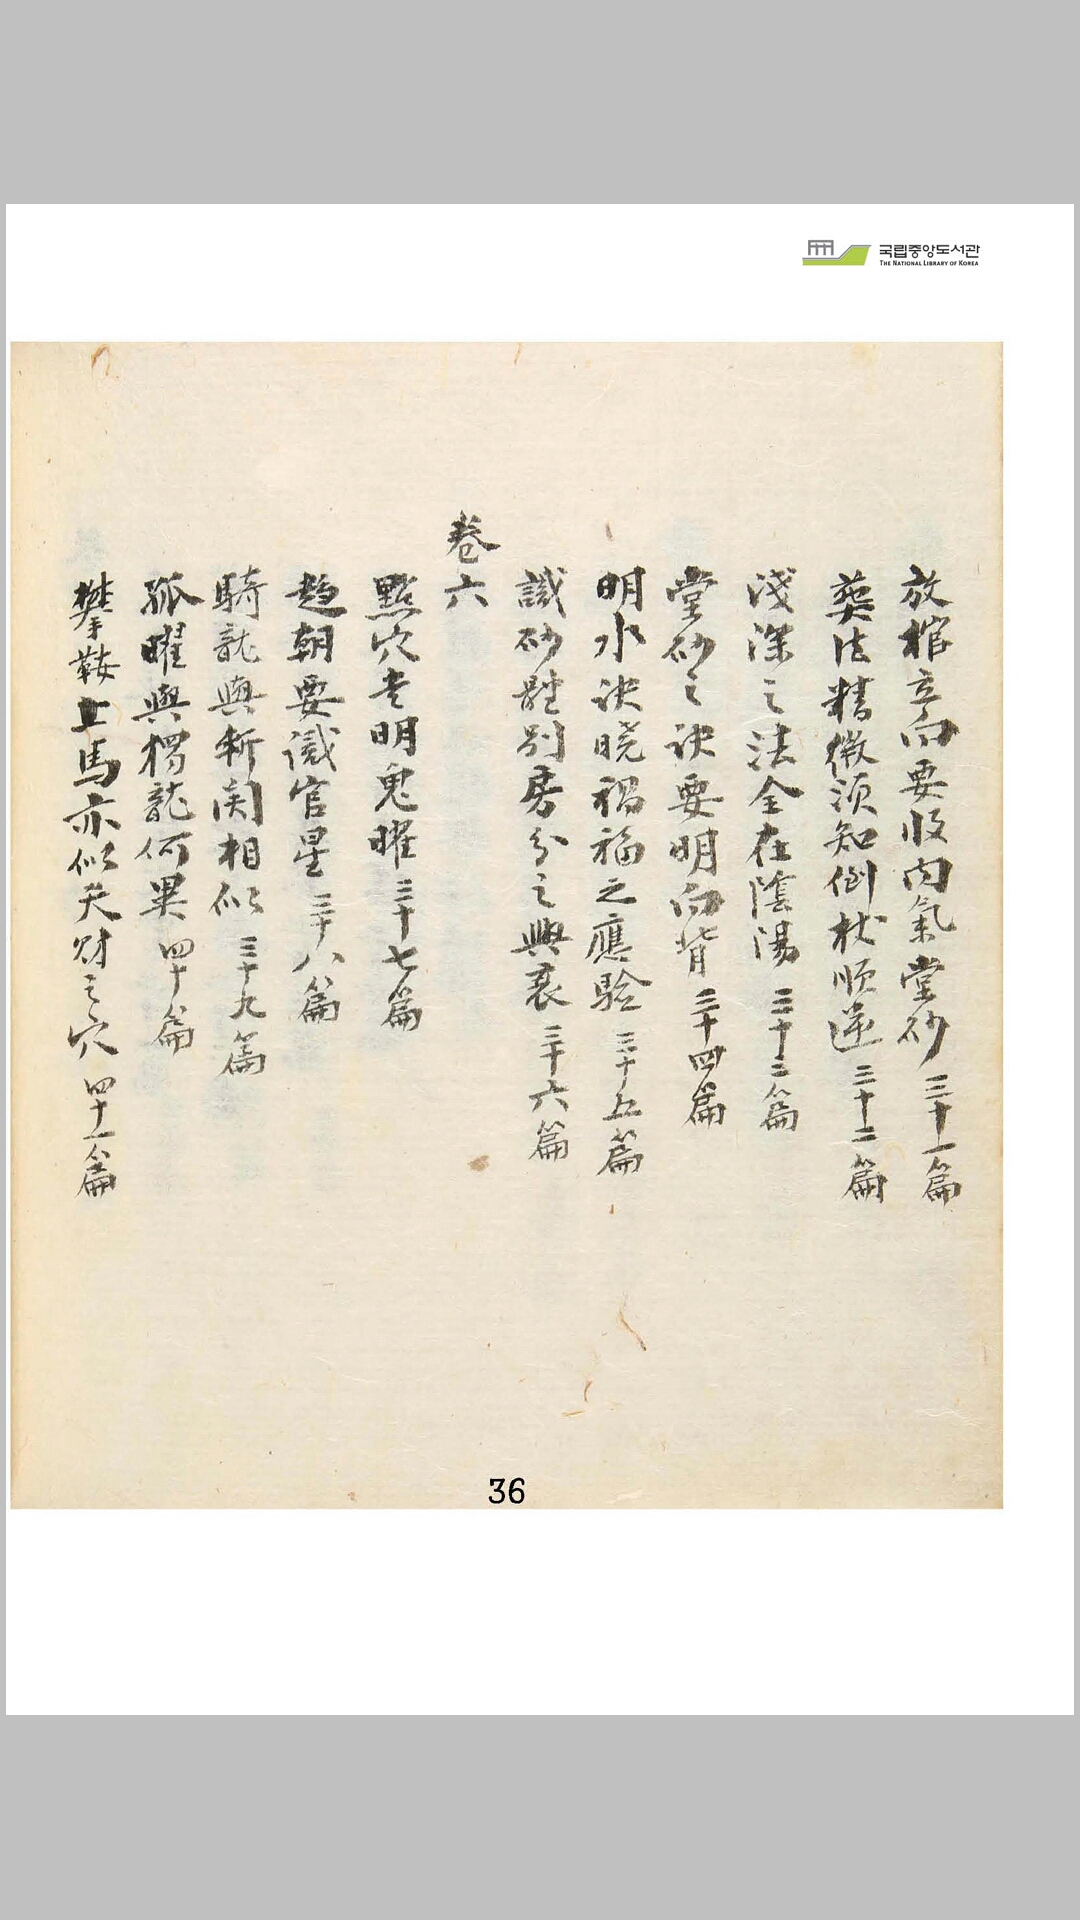 국립중앙도서관
THE NATIONAL LIBRARY OF KOREA
放棺立向要收內氣堂砂 三十一篇
葬法精微須知倒杖順逆 三十二篇
淺深之法全在陰陽 三十三篇
堂砂之訣要明向背 三十四篇
明水訣曉禍福之應驗 三十五篇
識砂體別房分之興衰 三十六篇
卷六
點穴先明鬼曜 三十七篇
趨朝要識官星 三十八篇
騎龍與斬関相似 三十九篇
孤曜與獨龍何異 四十篇
攀鞍上馬亦似天財之穴 四十一篇
36